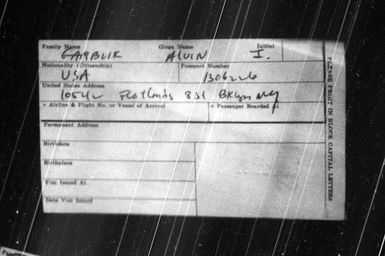 Family Name Given Name Initial
GARBUK ALVIN I.
Nationality (Citizenship) Passport Number
USA 1306226
United States Address
10542 Flatlands 8 St BKlyn NY
Airline & Flight No. or Vessel of Arrival Passenger Boarded At
Permanent Address
Birthdate
Birthplace
Visa Issued At
Date Visa Issued
PLEASE PRINT IN BLOCK CAPITAL LETTERS